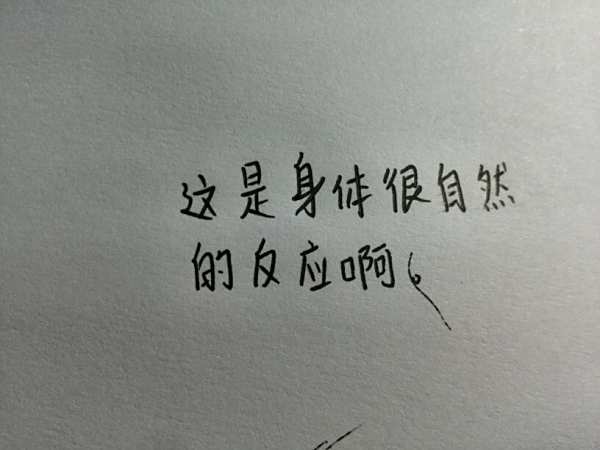 这是身体很自然
的反应啊。